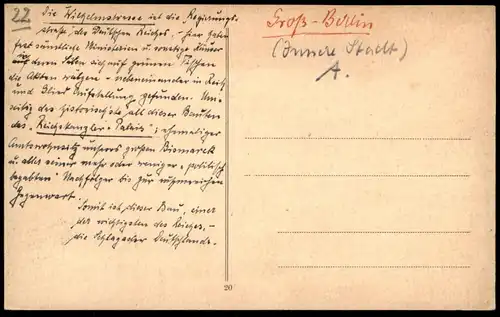 22
Die Wilhelmstrasse ist die Regierungs-
strasse des Deutschen Reiches, - hier haben
fast sämtliche Ministerien u. sonstige
auf deren sich auf grünen Tischen
die Akten wälzen - nebeneinander in Reih
und Glied Aufstellung gefunden. Un-
streitig das historischste all dieser Bauten
das "Reichskanzler-Palais", ehemaliger
Amtswohnsitz unseres großen Bismarck
u. aller seiner mehr oder weniger "politisch
begabten" Nachfolger bis zur ruhmreichen
Gegenwart.
Somit ist dieser Bau, einer
der wichtigsten des Reiches, -
die Deutschlands.
Groß-Berlin
(Innere Stadt)
A.
20